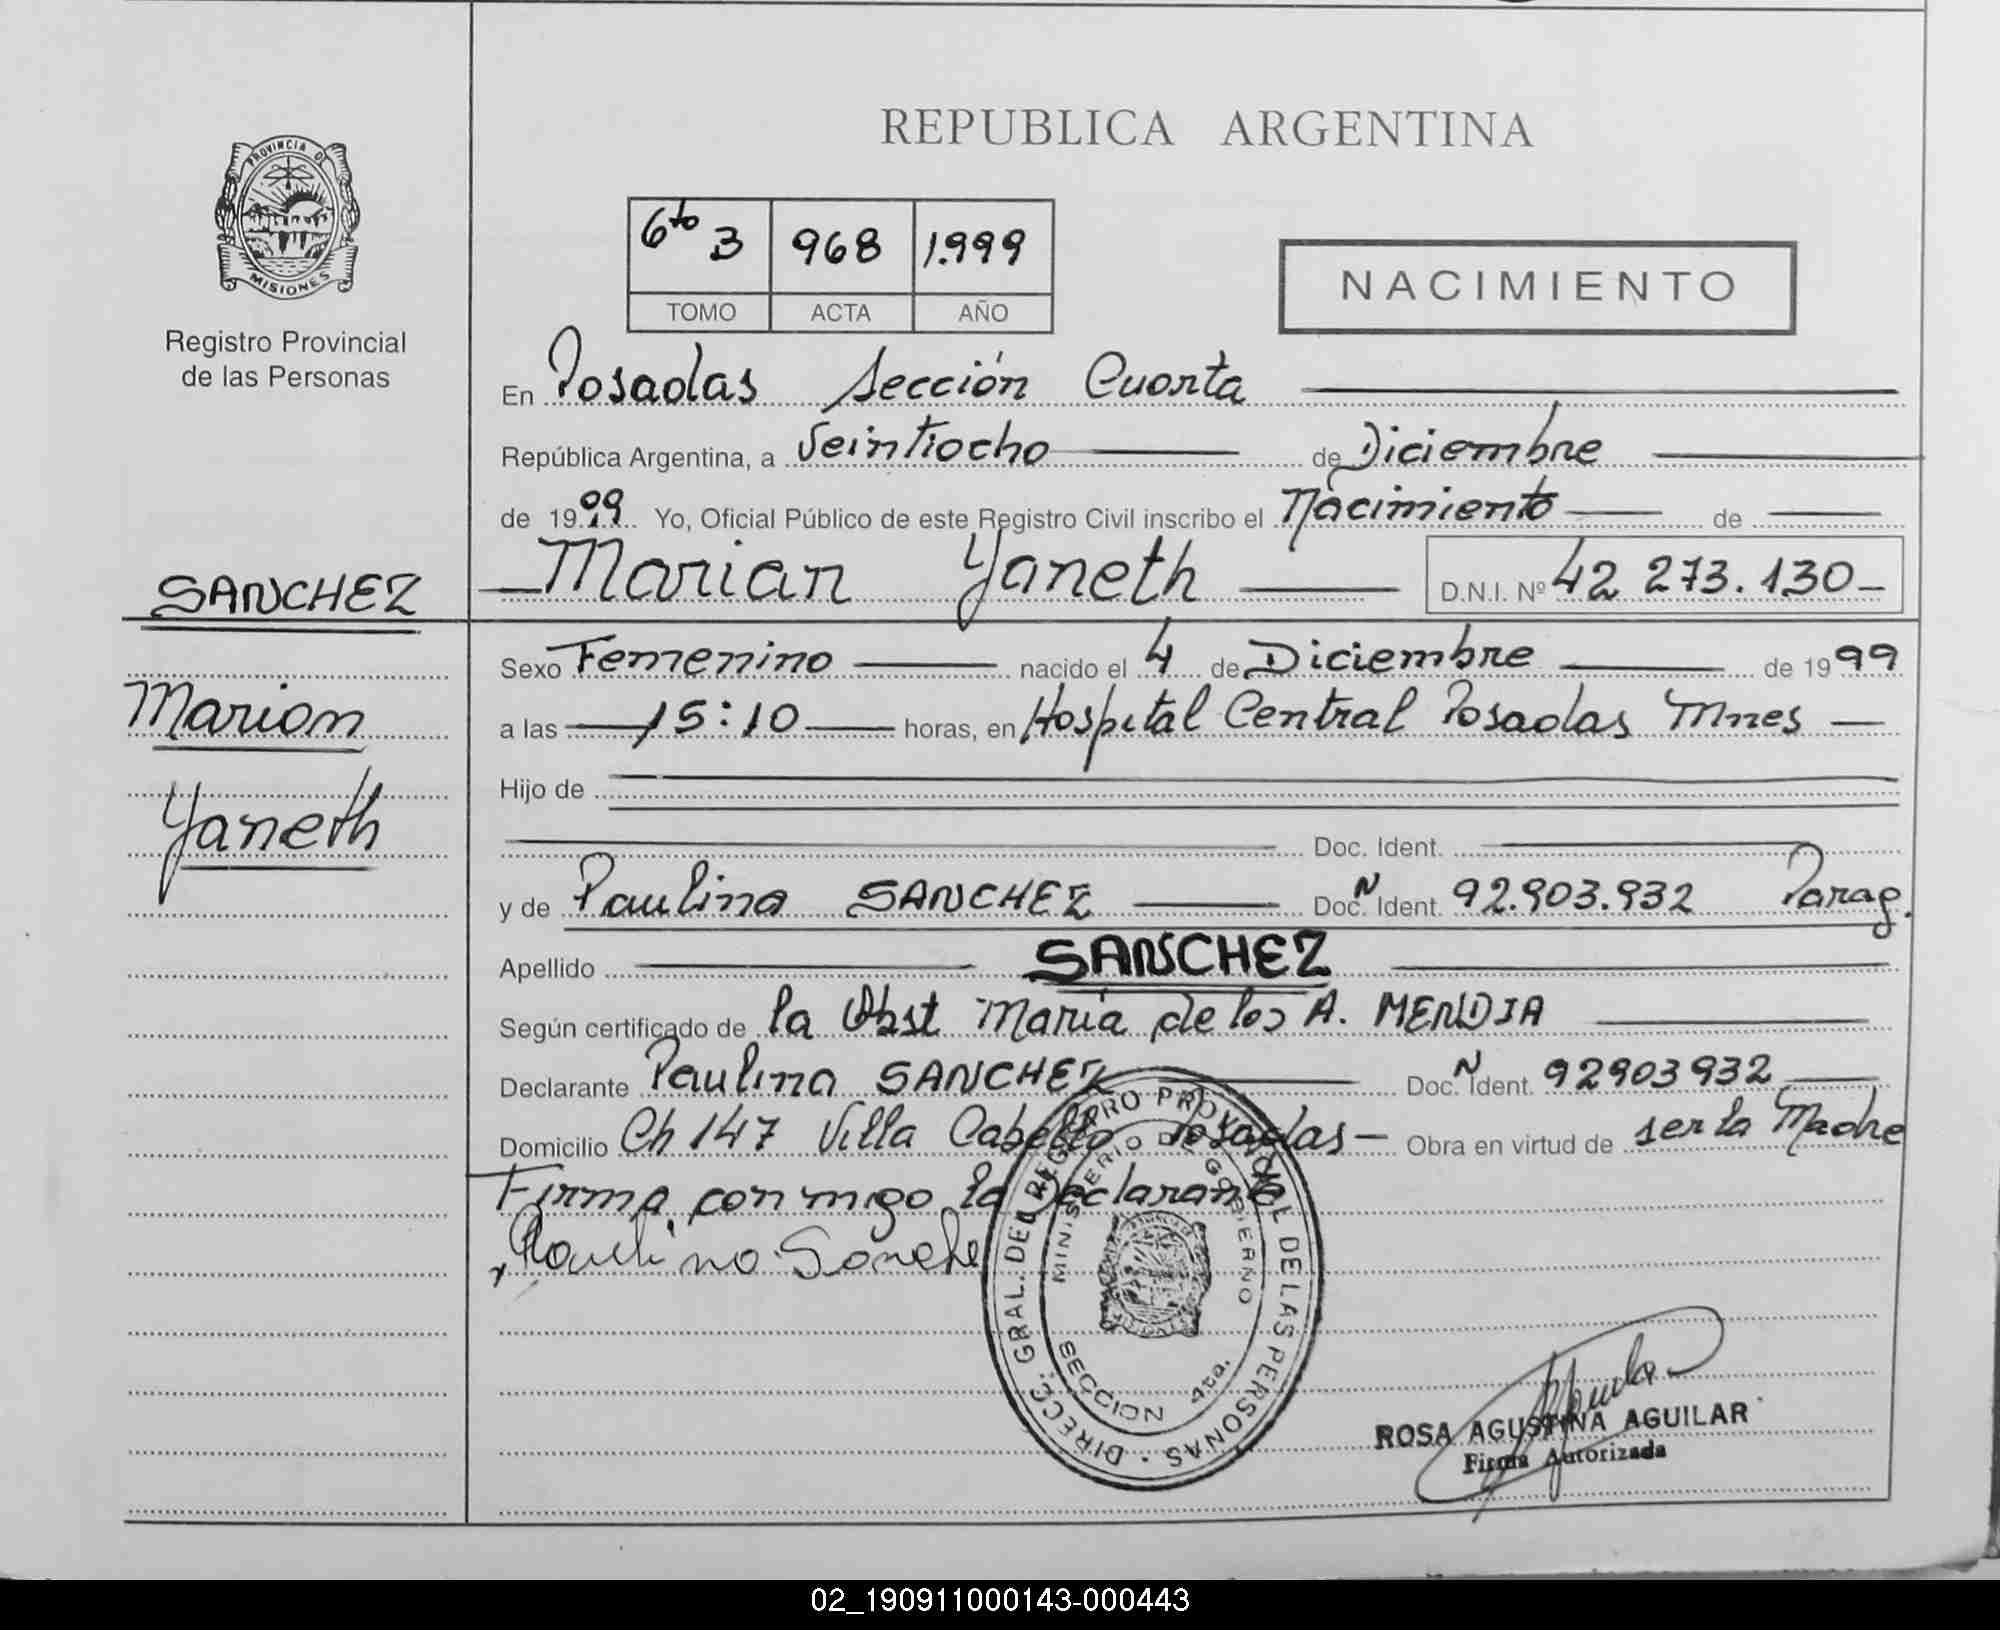 REPUBLICA ARGENTINA
PROVINCIA D
MISIONES
Registro Provincial
de las Personas
6to B 968 1.999
TOMO ACTA AÑO
NACIMIENTO
En Posadas Sección Cuarta
República Argentina, a Veintiocho de Diciembre
de 1999 Yo, Oficial Público de este Registro Civil inscribo el Nacimiento de
Marian Yaneth D.N.I. Nº 42 273.130-
SANCHEZ
Marian
Yaneth
Sexo Femenino nacido el 4 de Diciembre de 1999
a las 15:10 horas, en Hospital Central Posadas Mnes
Hijo de
Doc. Ident.
y de Paulina SANCHEZ Doc. N Ident. 92.903.932 Parag.
Apellido SANCHEZ
Según certificado de la Obst María de los A. MENDIA
Declarante Paulina SANCHEZ Doc. N Ident. 92903932
Domicilio Ch 147 Villa Cabello Posadas- Obra en virtud de ser la Madre
Firma conmigo la Declarante
Paulino Sanche
DIRECC. GRAL. DEL REGISTRO PROVINCIAL DE LAS PERSONAS.
MINISTERIO DE GOBIERNO
SECCION 4ta.
ROSA AGUSTINA AGUILAR
Firma Autorizada
02_190911000143-000443